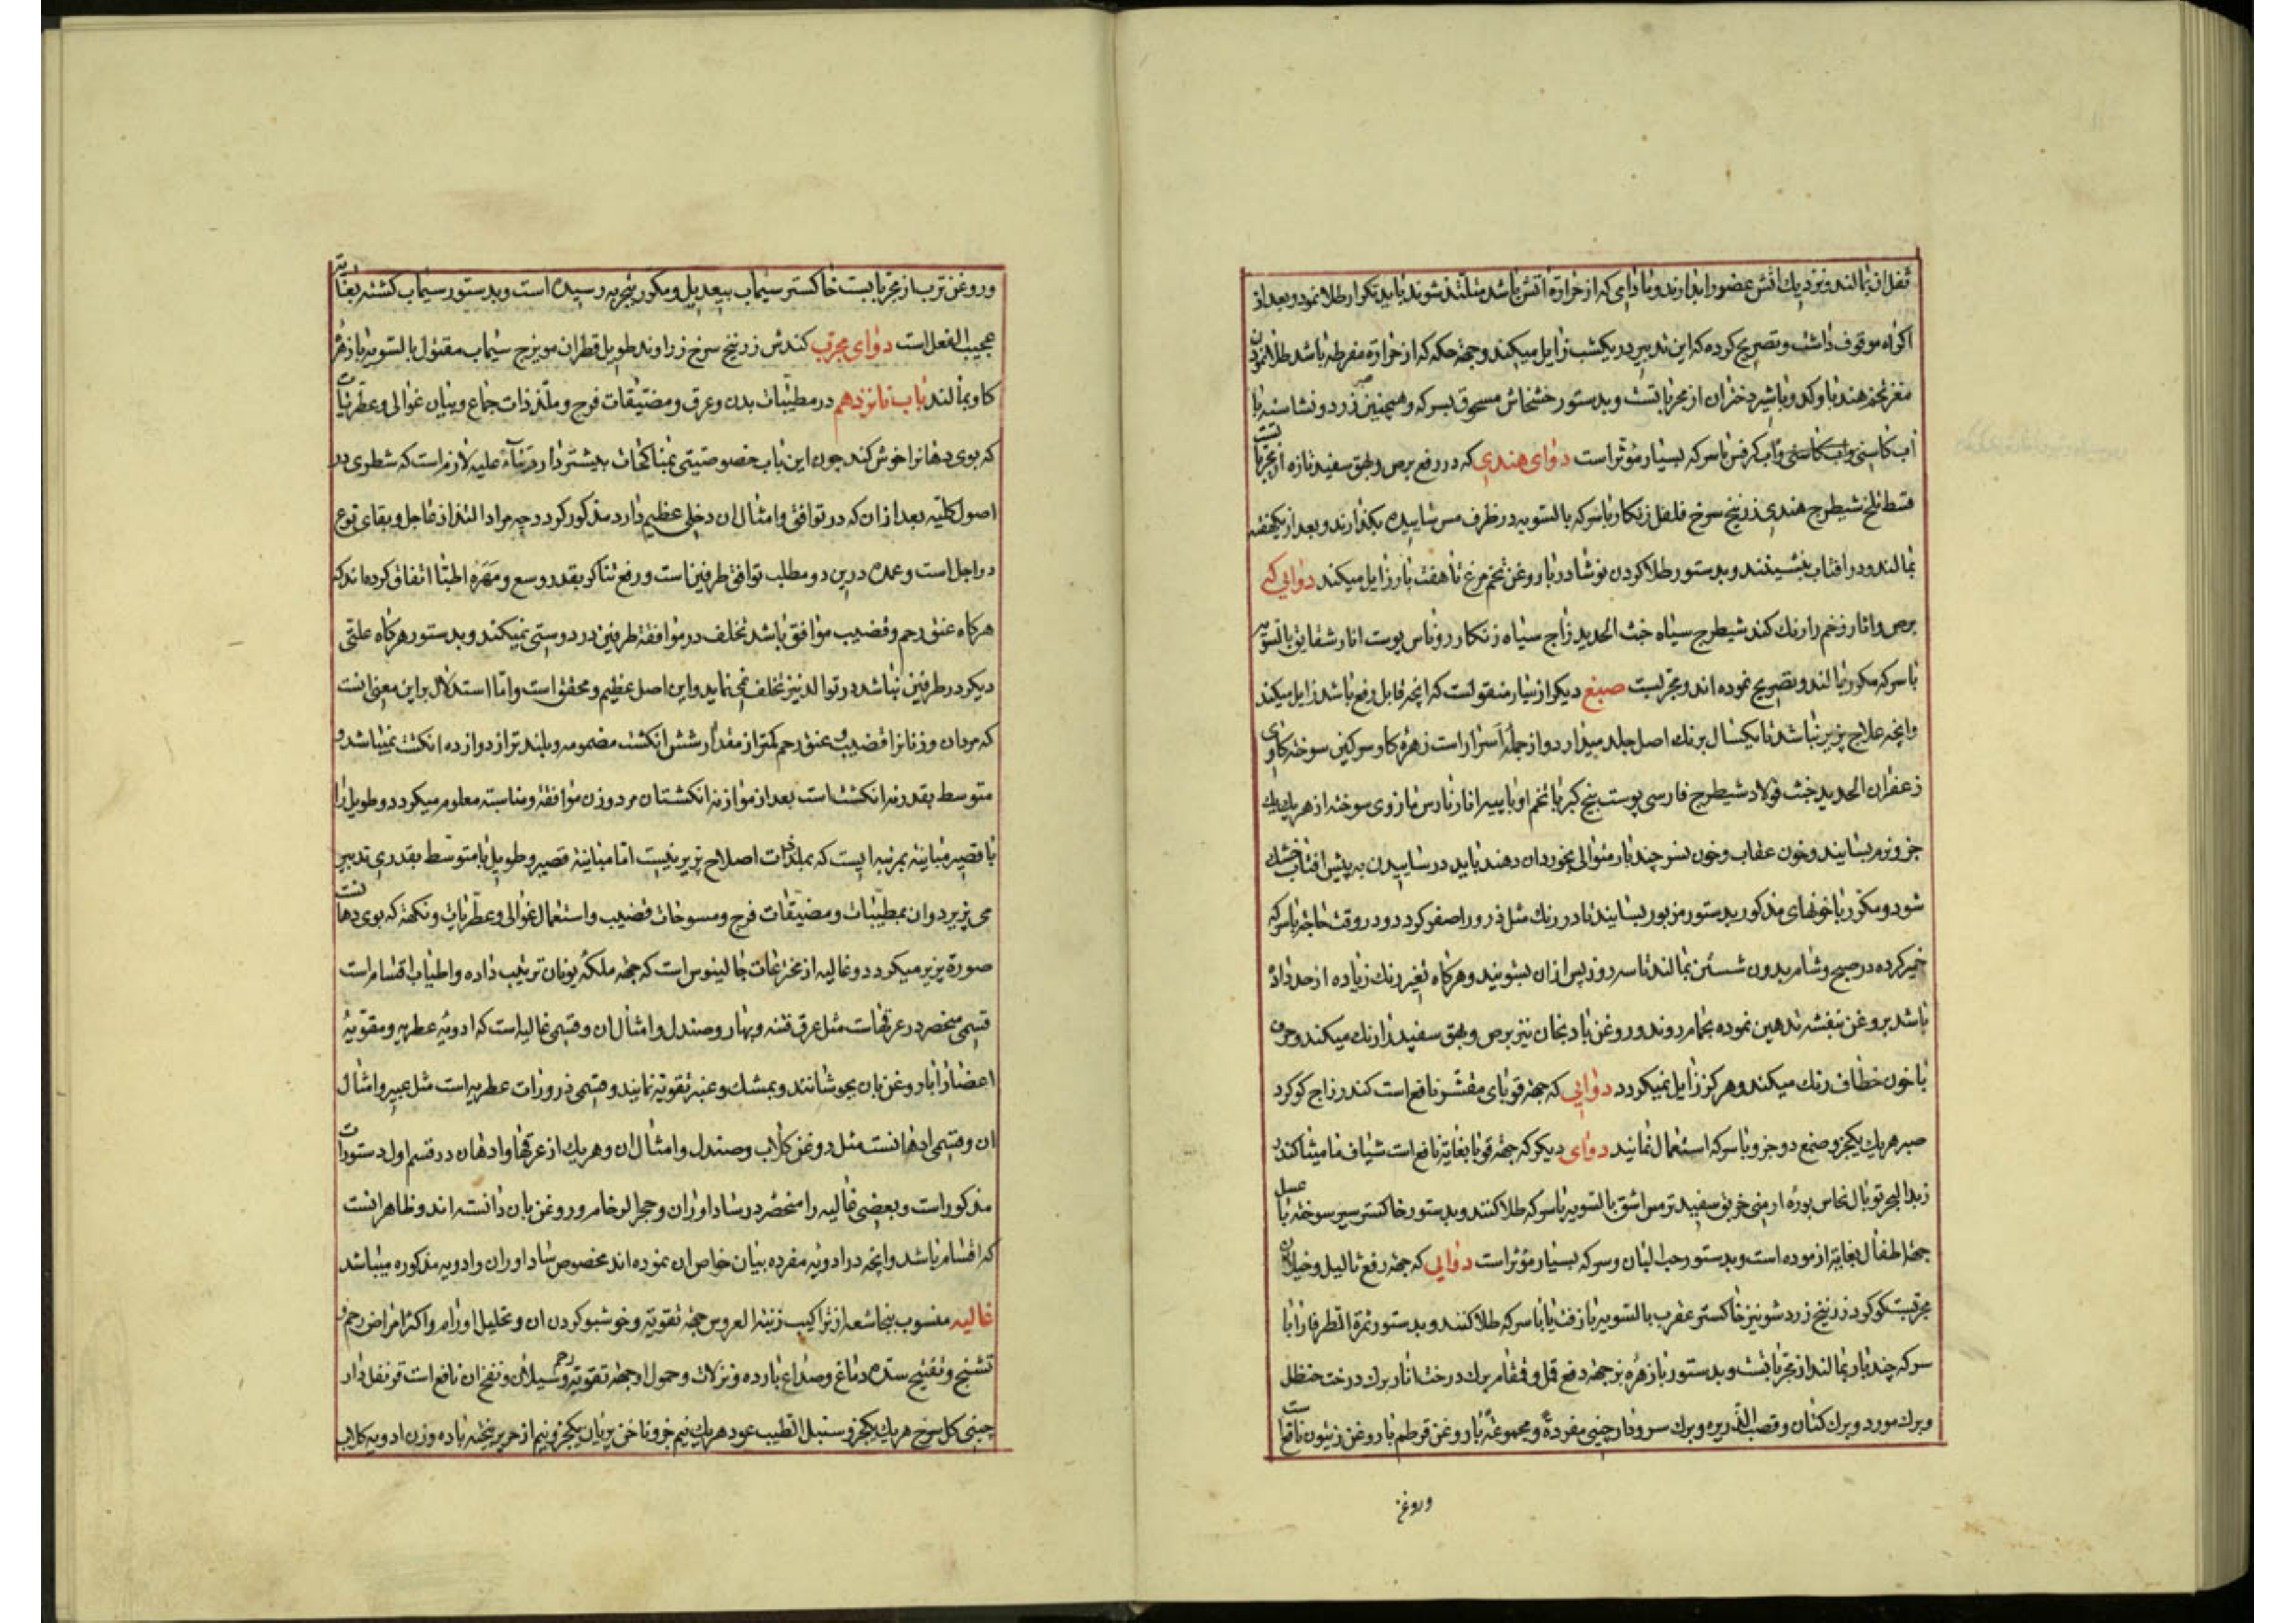 ثفل ان بمالند و نزدیك اتش عضو را بدارند و مادامی که از حرارة اتش باشد متلذذ شوند باید تکرار طلا نمود و بعد از
اکراه موقوف داشت و تصریح کرده که این تدبیر در یکشب زایل میکند و جهة حکه که از حرارة مفرطه باشد طلا نمودن
مغز تخم هندباو کدو با شیر دختران از مجرباتست و بدستور خشخاش مسحوق بسرکه و همچنین زرد و نشاسته با
اب کاسنی و اب کاسنی و اب کرفس با سرکه بسیار مؤثر است دوای هندی که در رفع برص و بهق سفید تازه از مجرباتست
قسط تلخ شیطرج هندی زرنیخ سرخ فلفل زنکار با سرکه بالسویه در ظرف مس ساییده بکذارند و بعد از یکهفته
بمالند و در افتاب بنشینند و بدستور طلا کردن نوشادر با روغن تخم مرغ تا هفت بار زایل میکند دوایی که
برص و اثار زخم را رنك کند شیطرج سیاه خبث الحدید زاج سیاه زنکار روناس پوست انار شقایق بالسویه
با سرکه مکرر بمالند و تصریح نموده اند و مجربست صبغ دیکر از نیار منقولست که انچه قابل رفع باشد زایل میکند
و انچه علاج پزیر نباشد تا یکسال برنك اصل جلد میدارد و از جمله اسرار است زهره کاو سرکین سوخته کاوی
زعفران الحدید خبث فولاد شیطرج فارسی پوست بیخ کبر با تخم او با پیه انار نارس مازوی سوخته از هریك یك
جزو نرم بسایند و خون عقاب و خون نسر چند بار متوالی بخورد ان دهند باید در ساییدن به پیش افتاب خشك
شود و مکرر با خونهای مذکور بدستور مزبور بسایند تا در رنك مثل ذرور اصفر کردد و در وقت حاجة با سرکه
خمیر کرده در صبح و شام بدون شستن بمالند تا سه روز پس ازان بشویند و هرکاه تغیر رنك زیاده از حد داده
باشد بروغن بنفشه تدهین نموده بحمام روند و روغن بادنجان نیز برص و بهق سفید را رنك میکند و حرف
با خون خطاف رنك میکند و هرکز زایل نمیکردد دوایی که جهة قوبای مقشر نافع است کندر زاج کوکرد
صبر هریك یکجزو صمغ دو جزو با سرکه استعمال نمایند دوای دیکر که جهة قوبا بغایة نافع است شیاف مامیثا کندر
زبد البحر توبال نحاس بوره ارمنی خربق سفید ترمس اشق بالسویه با سرکه طلا کنند و بدستور خاکستر سیر سوخته با عسل
جهة اطفال بغایة ازموده است و بدستور حب البان و سرکه بسیار مؤثر است دوایی که جهة رفع ثالیل و خیلان
مجربست کوکرد زرنیخ زرد شونیز خاکستر عقرب بالسویه با زفت یا با سرکه طلا کنند و بدستور ثمرة الطرفا را با
سرکه چند بار بمالند از مجرباتست و بدستور با زهره بز جهة دفع قمل و قمقام برك درخت انار برك درخت حنظل
و برك مورد و برك کتان و قصب الذریره و برك سرو دارچینی مفردة و مجموعة با روغن قرطم با روغن زیتون نافعست
وروغن
و روغن ترب از مجرباتست خاکستر سیماب بیعدیل و مکرر بتجربه رسیده است و بدستور سیماب کشته بغایة
عجیب الفعل است دوای مجرب کندش زرنیخ سرخ زراوند طویل قطران مویزج سیماب مقتول بالسویه با زهره
کاو بمالند باب نانزدهم در مطیبات بدن و عرق و مضیقات فرج و ملذذات جماع و بیان غوالی و عطریات
که بوی دهانرا خوش کند چون این باب خصوصیتی بمناکحات بیشتر دارد بناء علیه لازم است که شطری در
اصول کلیه بعد ازان که در توافق و امثال ان دخلی عظیم دارد مذکور کردد چه مراد التذاذ عاجل و بقای نوع
در اجل است و عمده درین دو مطلب توافق طرفین است و رفع تناکر بقدر وسع و مهره اطبا اتفاق کرده اند که
هرکاه عنق رحم و قضیب موافق باشد تخلف در موافقة طرفین در دوستی نمیکند و بدستور هرکاه علتی
دیکر در طرفین نباشد در توالد نیز تخلف نمی نماید و این اصل عظیم و محقق است و اما استدلال بر این معنی انست
که مردان و زنانرا قضیب و عنق رحم کمتر از مقدار شش انکشت مضمومه و بلند تر از دوازده انکشت نمیباشد و
متوسط بقدر نه انکشت است بعد از موازنه انکشتان مرد و زن موافقة و مناسبة معلوم میکردد و طویل را
با قصیر مباینة بمرتبه ایست که بملذذات اصلاح پزیر نیست اما مباینة قصیر و طویل با متوسط بقدری تدبیر
می پزیرد و ان بمطیبات و مضیقات فرج و مسوحات قضیب و استعمال غوالی و عطریات و نکهة که بوی دهانست
صورة پزیر میکردد و غالیه از مخترعات جالینوس است که جهة ملکه یونان ترتیب داده و اطیاب اقسام است
قسمی منحصر در عرقهاست مثل عرق فتنه و بهار و صندل و امثال ان و قسمی غالیه است که ادویه عطریه و مقویه
اعضا را با روغن بان بجوشانند و بمشك و عنبر تقویة نمایند و قسمی ذرورات عطریه است مثل عبیر و امثال
ان و قسمی ادهانست مثل روغن کلاب و صندل و امثال ان و هریك از عرقها و ادهان در قسم اول دستورات
مذکور است و بعضی غالیه را منحصر در شاداوران و حجر الرخام و روغن بان دانسته اند و ظاهر انست
که اقسام باشد و انچه در ادویه مفرده بیان خواص ان نموده اند مخصوص شاداوران و ادویه مذکوره میباشد
غالیه منسوب بنجاشعه از تراکیب زینة العروس جهة تقویة و خوشبو کردن ان و تحلیل اورام و اکثر امراض رحم و
تشنج و تفتیح سده دماغ و صداع بارده و نزلات و حمول او جهة تقویة رحم و سیلان و نفخ ان نافع است قرنفل دار
چینی کل سرخ هریك یکجزو سنبل الطیب عود هریك نیم جزو ناخن بریان یکجزو نیم از حریر بیخته باده وزن ادویه کلاب